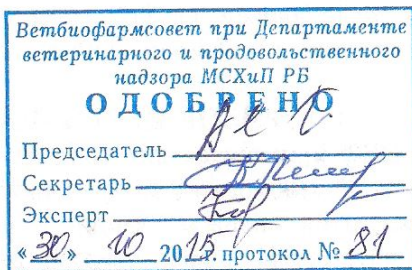 Ветбиофармсовет при Департаменте
ветеринарного и продовольственного
надзора МСХиП РБ
ОДОБРЕНО
Председатель
Секретарь
Эксперт
«30» 10 2015г. протокол № 81